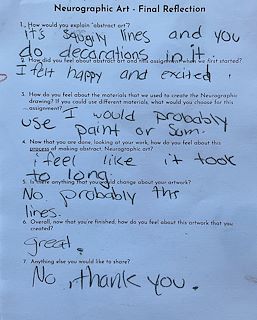 Neurographic Art - Final Reflection
1. How would you explain "abstract art"?
it's squigily lines and you
do decorations in it.
2. How did you feel about abstract art and this assignment when we first started?
I felt happy and excited.
3. How do you feel about the materials that we used to create the Neurographic
drawing? If you could use different materials, what would you choose for this
assignment?
I would probably
use paint or sum.
4. Now that you are done, looking at your work, how do you feel about this
process of making abstract, Neurographic art?
i feel like it took
to long.
5. Is there anything that you would change about your artwork?
No, probably the
lines.
6. Overall, now that you're finished, how do you feel about this artwork that you
created?
great.
7. Anything else you would like to share?
No, thank you.